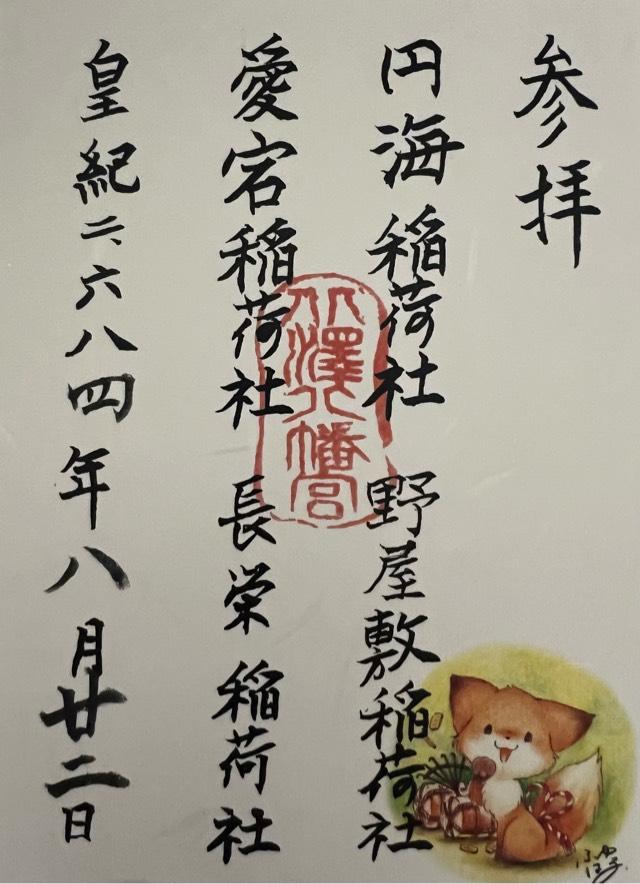 参拝
円海稲荷社 野屋敷稲荷社
愛宕稲荷社 長栄稲荷社
皇紀二、六八四年八月廿二日
八幡宮